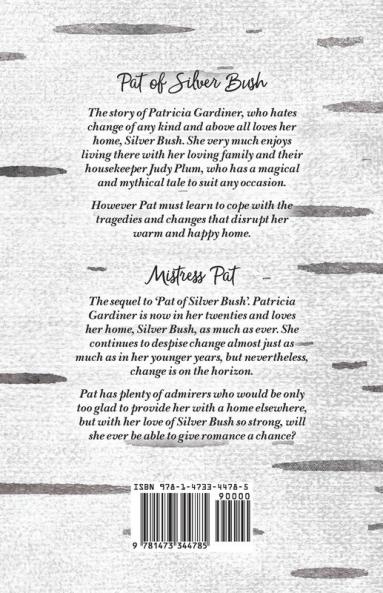 Pat of Silver Bush
The story of Patricia Gardiner, who hates
change of any kind and above all loves her
home, Silver Bush. She very much enjoys
living there with her loving family and their
housekeeper Judy Plum, who has a magical
and mythical tale to suit any occasion.
However Pat must learn to cope with the
tragedies and changes that disrupt her
warm and happy home.
Mistress Pat
The sequel to 'Pat of Silver Bush'. Patricia
Gardiner is now in her twenties and loves
her home, Silver Bush, as much as ever. She
continues to despise change almost just as
much as in her younger years, but nevertheless,
change is on the horizon.
Pat has plenty of admirers who would be only
too glad to provide her with a home elsewhere,
but with her love of Silver Bush so strong, will
she ever be able to give romance a chance?
ISBN 978-1-4733-4478-5
90000
9 781473 344785